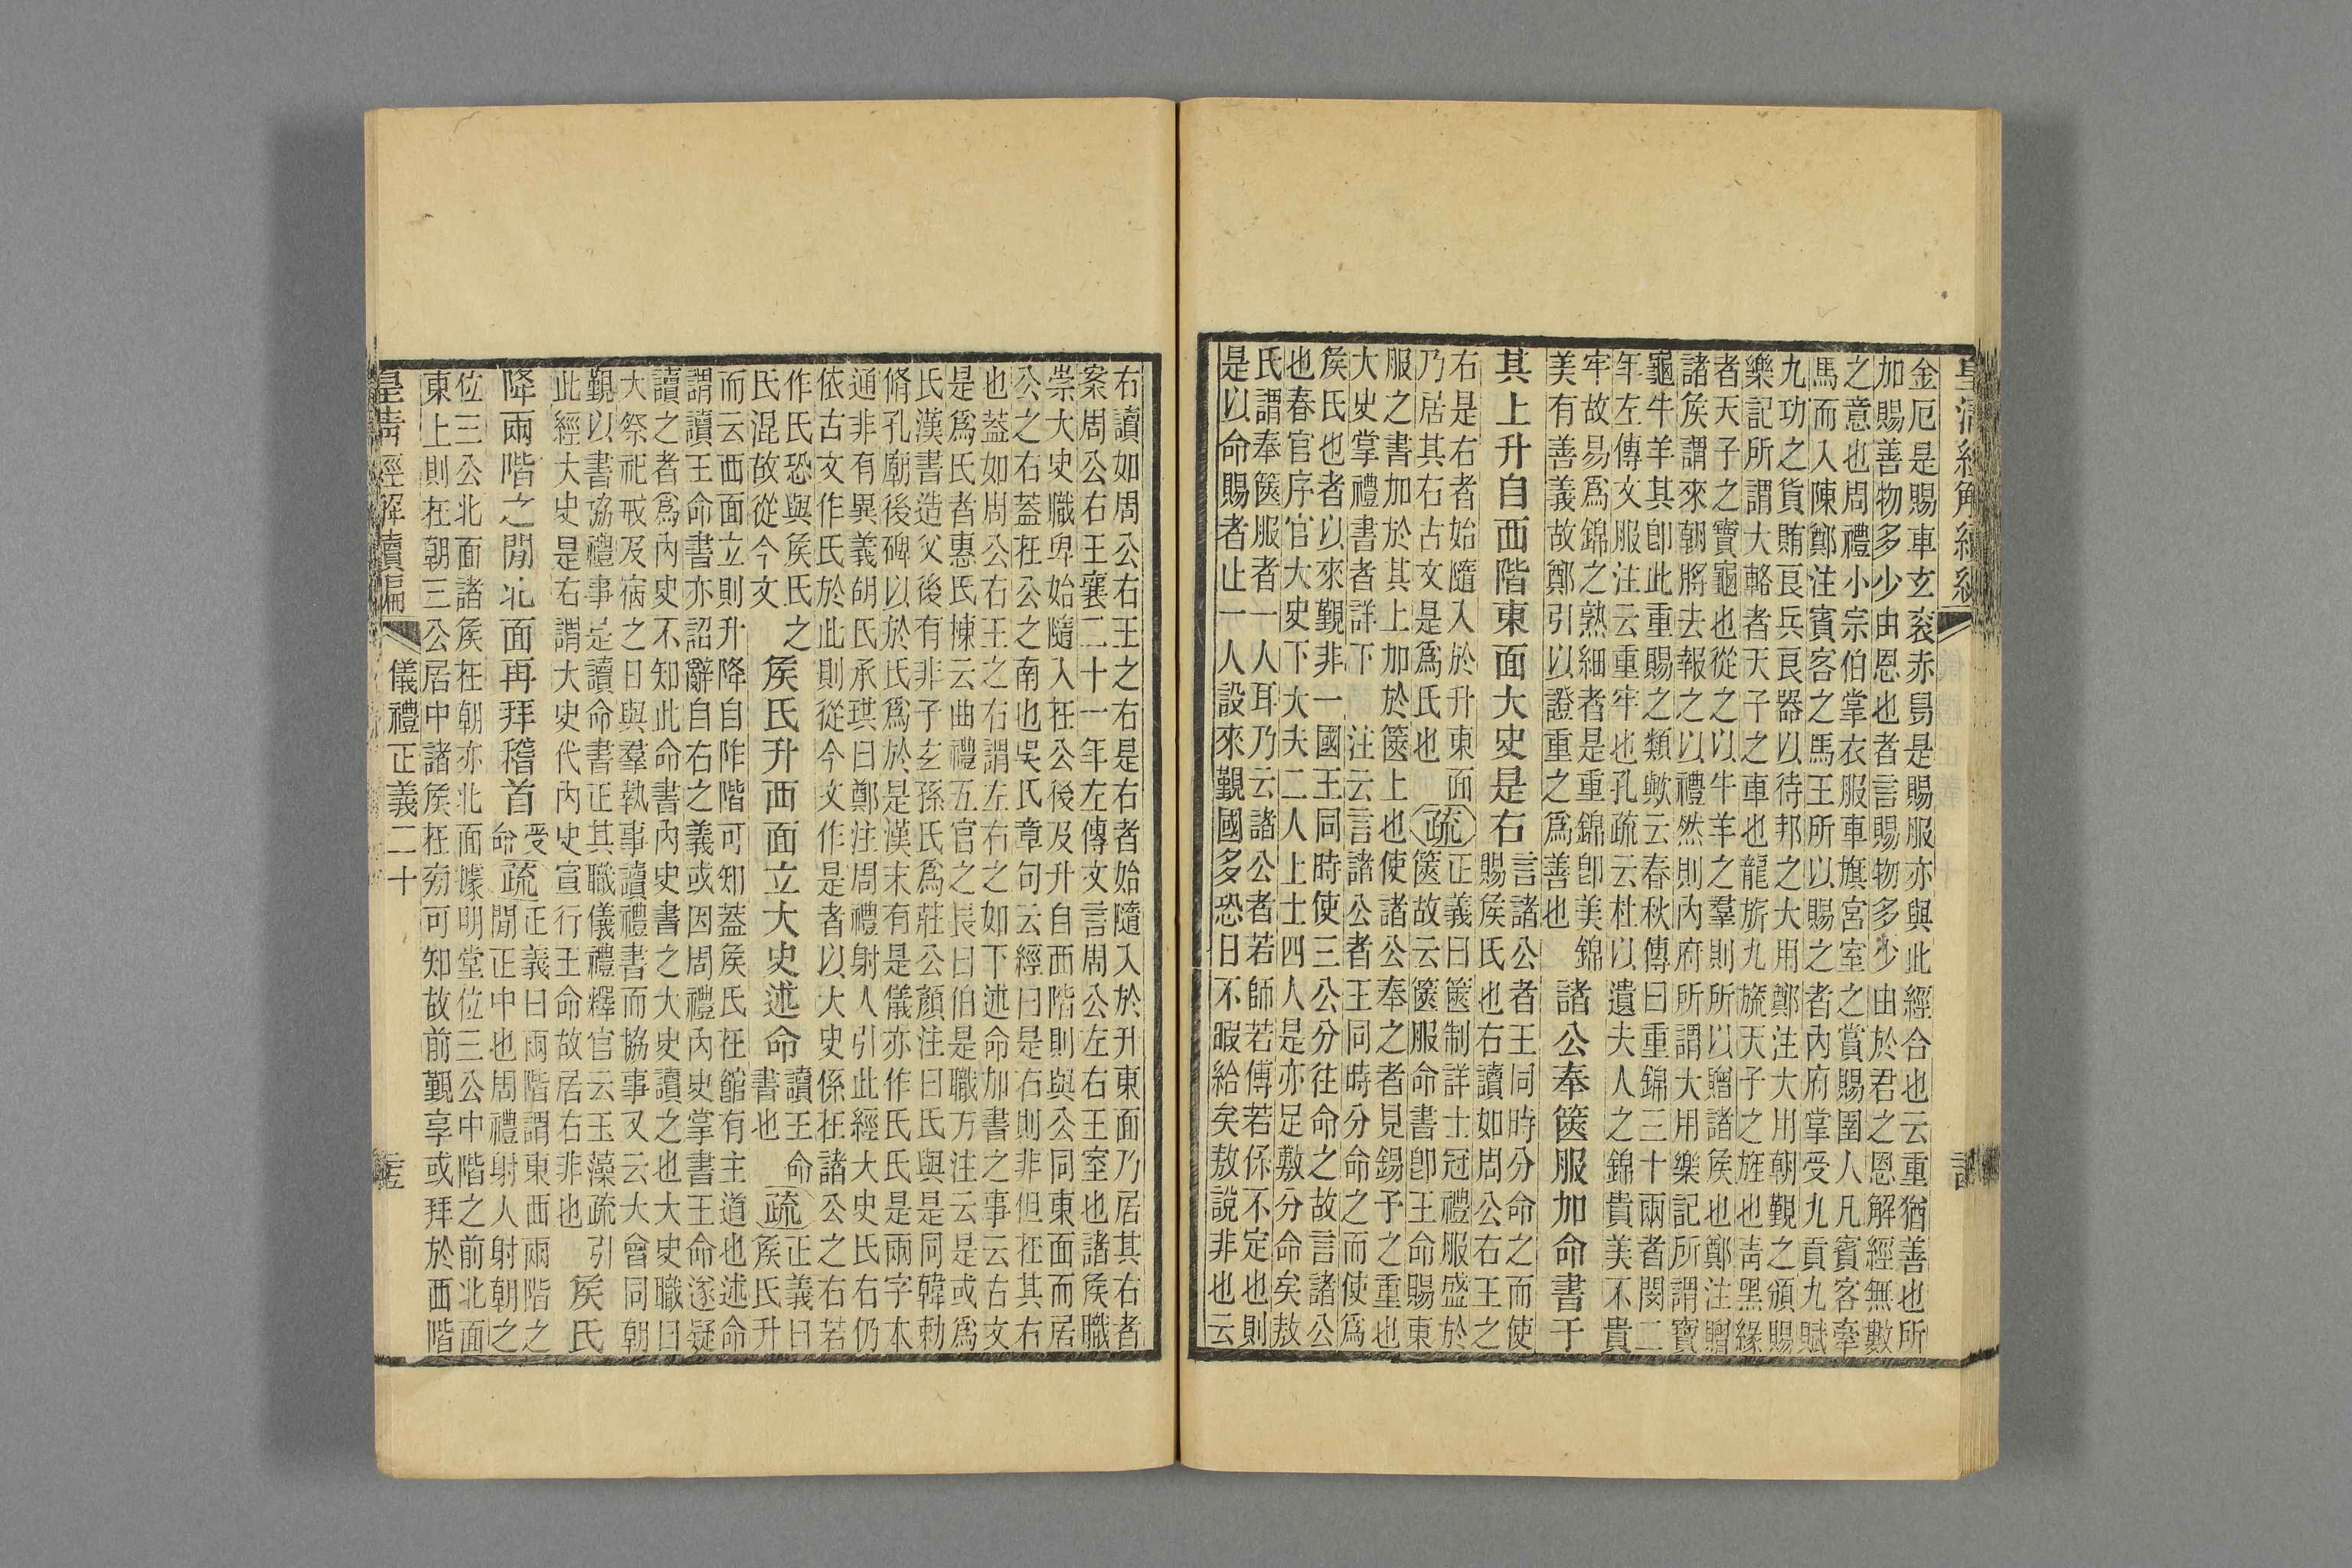 金厄是賜車玄衮赤舄是賜服亦與此經合也云重猶善也所
加賜善物多少由恩也者言賜物多少由於君之恩解經無數
之意也周禮小宗伯掌衣服車旗宮室之賞賜圉人凡賓客牽
馬而入陳鄭注賓客之馬王所以賜之者內府掌受九貢九賦
九功之貨賄良兵良器以待邦之大用鄭注大用朝覲之頒賜
樂記所謂大輅者天子之車也龍旂九旒天子之旌也靑黑緣
者天子之寶龜也從之以牛羊之羣則所以贈諸侯也鄭注贈
諸侯謂來朝將去報之以禮然則內府所謂大用樂記所謂寶
龜牛羊其卽此重賜之類歟云春秋傳曰重錦三十兩者閔二
年左傳文服注云重牢也孔疏云杜以遺夫人之錦貴美不貴
牢故易爲錦之熟細者是重錦卽美錦
美有善義故鄭引以證重之爲善也
諸公奉篋服加命書于
其上升自西階東面大史是右
言諸公者王同時分命之而使
賜侯氏也右讀如周公右王之
右是右者始隨入於升東面
乃居其右古文是爲氏也
疏
正義曰篋制詳士冠禮服盛於
篋故云篋服命書卽王命賜東
服之書加於其上加於篋上也使諸公奉之者見錫予之重也
大史掌禮書者詳下注云言諸公者王同時分命之而使爲
侯氏也者以來覲非一國王同時使三公分往命之故言諸公
也春官序官大史下大夫二人上士四人是亦足敷分命矣敖
氏謂奉篋服者一人耳乃云諸公者若師若傅若保不定也則
是以命賜者止一人設來覲國多恐日不暇給矣敖說非也云
右讀如周公右王之右是右者始隨入於升東面乃居其右者
案周公右王襄二十一年左傳文言周公左右王室也諸侯職
崇大史職卑始隨入在公後及升自西階則與公同東面而居
公之右蓋在公之南也吳氏章句云經曰是右則非但在其右
也蓋如周公右王之右謂左右之如下述命加書之事云古文
是爲氏者惠氏棟云曲禮五官之長曰伯是職方注云是或爲
氏漢書造父後有非子玄孫氏爲莊公顏注曰氏與是同韓勅
脩孔廟後碑以於氏爲於是漢末有是儀亦作氏氏是兩字本
通非有異義胡氏承珙曰鄭注周禮射人引此經大史氏右仍
依古文作氏於此則從今文作是者以大史係在諸公之右若
作氏恐與侯氏之
氏混故從今文
侯氏升西面立大史述命
讀王命
書也
疏
正義曰
侯氏升
而云西面立則升降自阼階可知蓋侯氏在館有主道也述命
謂讀王命書亦詔辭自右之義或因周禮內史掌書王命遂疑
讀之者爲內史不知此命書內史書之大史讀之也大史職曰
大祭祀戒及宿之日與羣執事讀禮書而協事又云大會同朝
覲以書協禮事是讀命書正其職儀禮釋官云玉藻疏引
此經大史是右謂大史代內史宣行王命故居右非也
侯氏
降兩階之閒北面再拜稽首
受
命
疏
正義曰兩階謂東西兩階之
閒正中也周禮射人射朝之
位三公北面諸侯在朝亦北面據明堂位三公中階之前北面
東上則在朝三公居中諸侯在旁可知故前覲享或拜於西階
皇清經解續編 儀禮正義二十